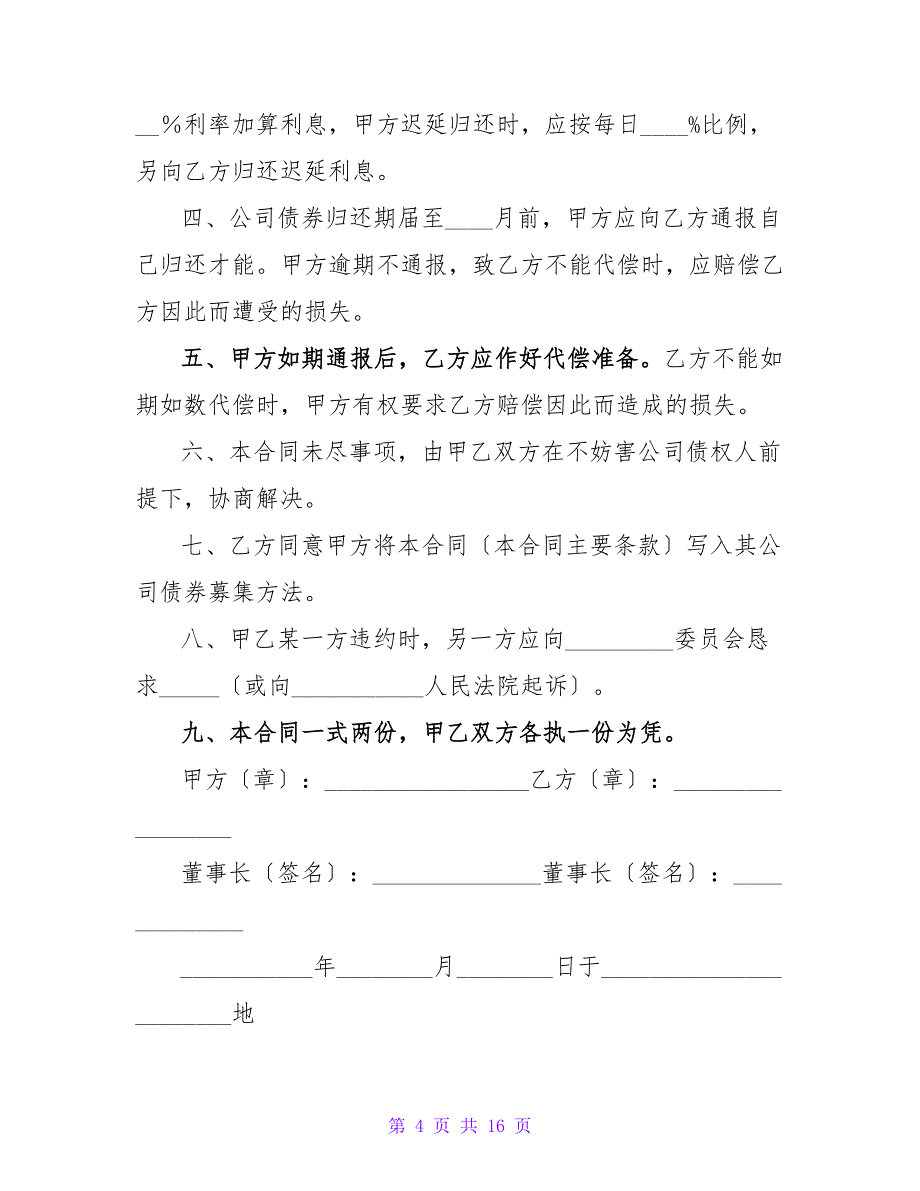 __%利率加算利息，甲方迟延归还时，应按每日____%比例，
另向乙方归还迟延利息。
四、公司债券归还期届至____月前，甲方应向乙方通报自
己归还才能。甲方逾期不通报，致乙方不能代偿时，应赔偿乙
方因此而遭受的损失。
五、甲方如期通报后，乙方应作好代偿准备。乙方不能如
期如数代偿时，甲方有权要求乙方赔偿因此而造成的损失。
六、本合同未尽事项，由甲乙双方在不妨害公司债权人前
提下，协商解决。
七、乙方同意甲方将本合同〔本合同主要条款〕写入其公
司债券募集方法。
八、甲乙某一方违约时，另一方应向_________委员会恳
求_____〔或向___________人民法院起诉〕。
九、本合同一式两份，甲乙双方各执一份为凭。
甲方〔章〕：_________________乙方〔章〕：_________
________
董事长〔签名〕：______________董事长〔签名〕：____
_________
___________年________月________日于_______________
________地
第 4 页 共 16 页